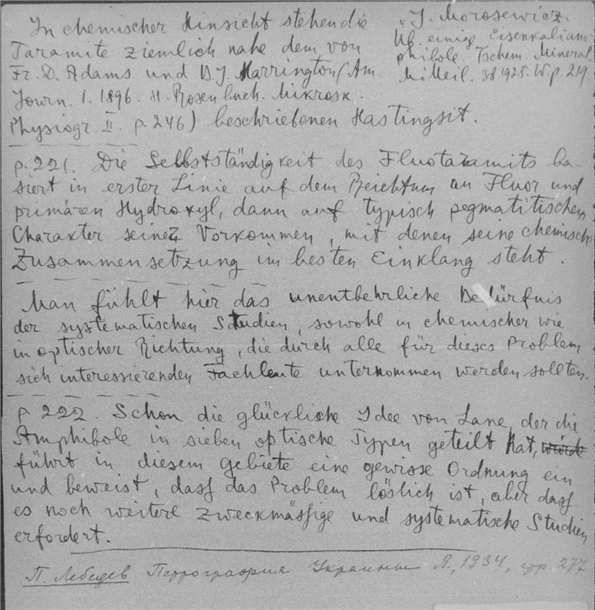 In chemischer Hinsicht stehen die
Taramite ziemlich nahe dem von
Fr. D. Adams und B.J. Harrington (Am
Journ. 1. 1896. H. Rosenbuch. Mikrosk.
Physiogr II. p. 246) beschriebenen Hastingsit.
„J. Morosewicz.
Üb. einige Eisenkaliam-
phibole. Tschem. Mineral.
Mitteil. 38. 1925. W. p. 219.
p. 221. Die Selbstständigkeit des Fluotaramits ba-
siert in erster Linie auf dem Reichtum an Fluor und
primären Hydroxyl, dann auf typisch pegmatitischen
Charakter seines Vorkommen, mit denen seine chemische
Zusammensetzung im besten Einklang steht.
Man fühlt hier das unentbehrliche Bedürfnis
der systematischen Studien, sowohl in chemischer wie
in optischer Richtung, die durch alle für dieses Problem
sich interessierenden Fachleute unternommen werden sollten.
p 222. Schon die glückliche Idee von Lane, der die
Amphibole in sieben optische Typen geteilt hat, würde
führt in diesem Gebiete eine gewisse Ordnung ein
und beweist, dass das Problem löslich ist, aber dass
es noch weitere zweckmässige und systematische Studien
erfordert.
П. Лебедев Петрография Украины Л., 1934, стр. 277